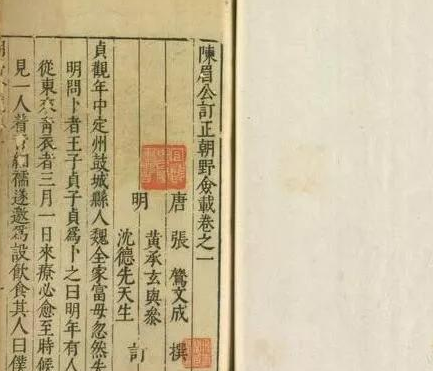 陳眉公訂正朝野僉載卷之一
唐 張鷟文成 撰
明 黃承玄與參
沈德先天生 訂
貞觀年中定州鼓城縣人魏全家富母忽然失
明問卜者王子貞子貞爲卜之曰明年有人
從東來青衣者三月一日來療必愈至時候
見一人着 紬襦遂邀爲設飲食其人曰僕